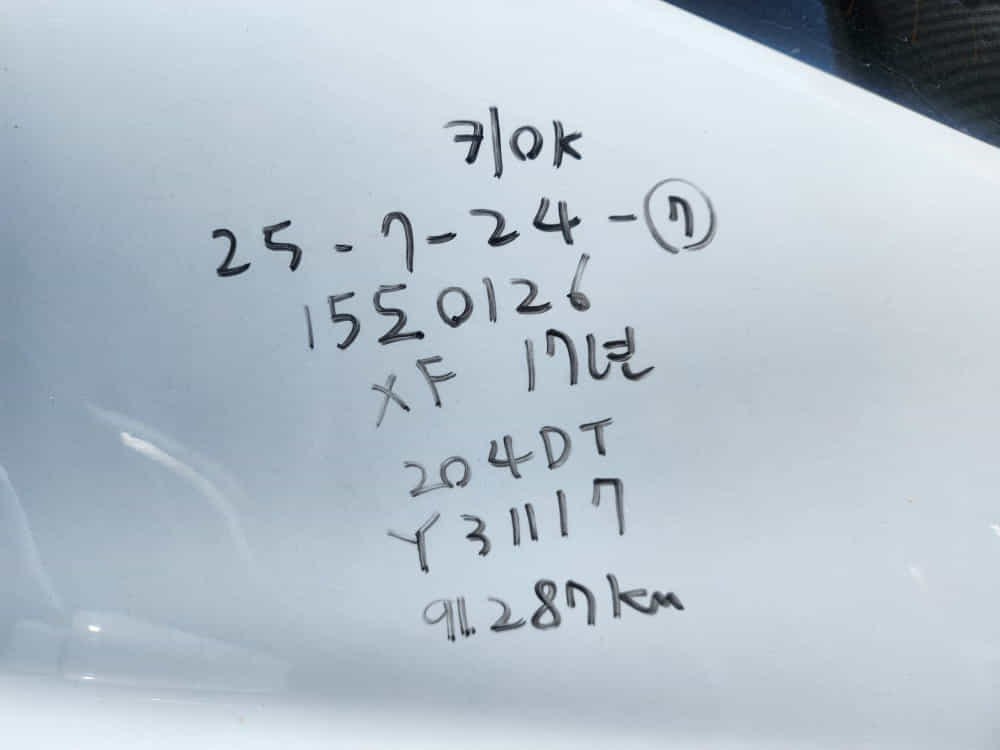 키OK
25-7-24-⑦
15도0126
XF 17년
204DT
Y31117
91.287km